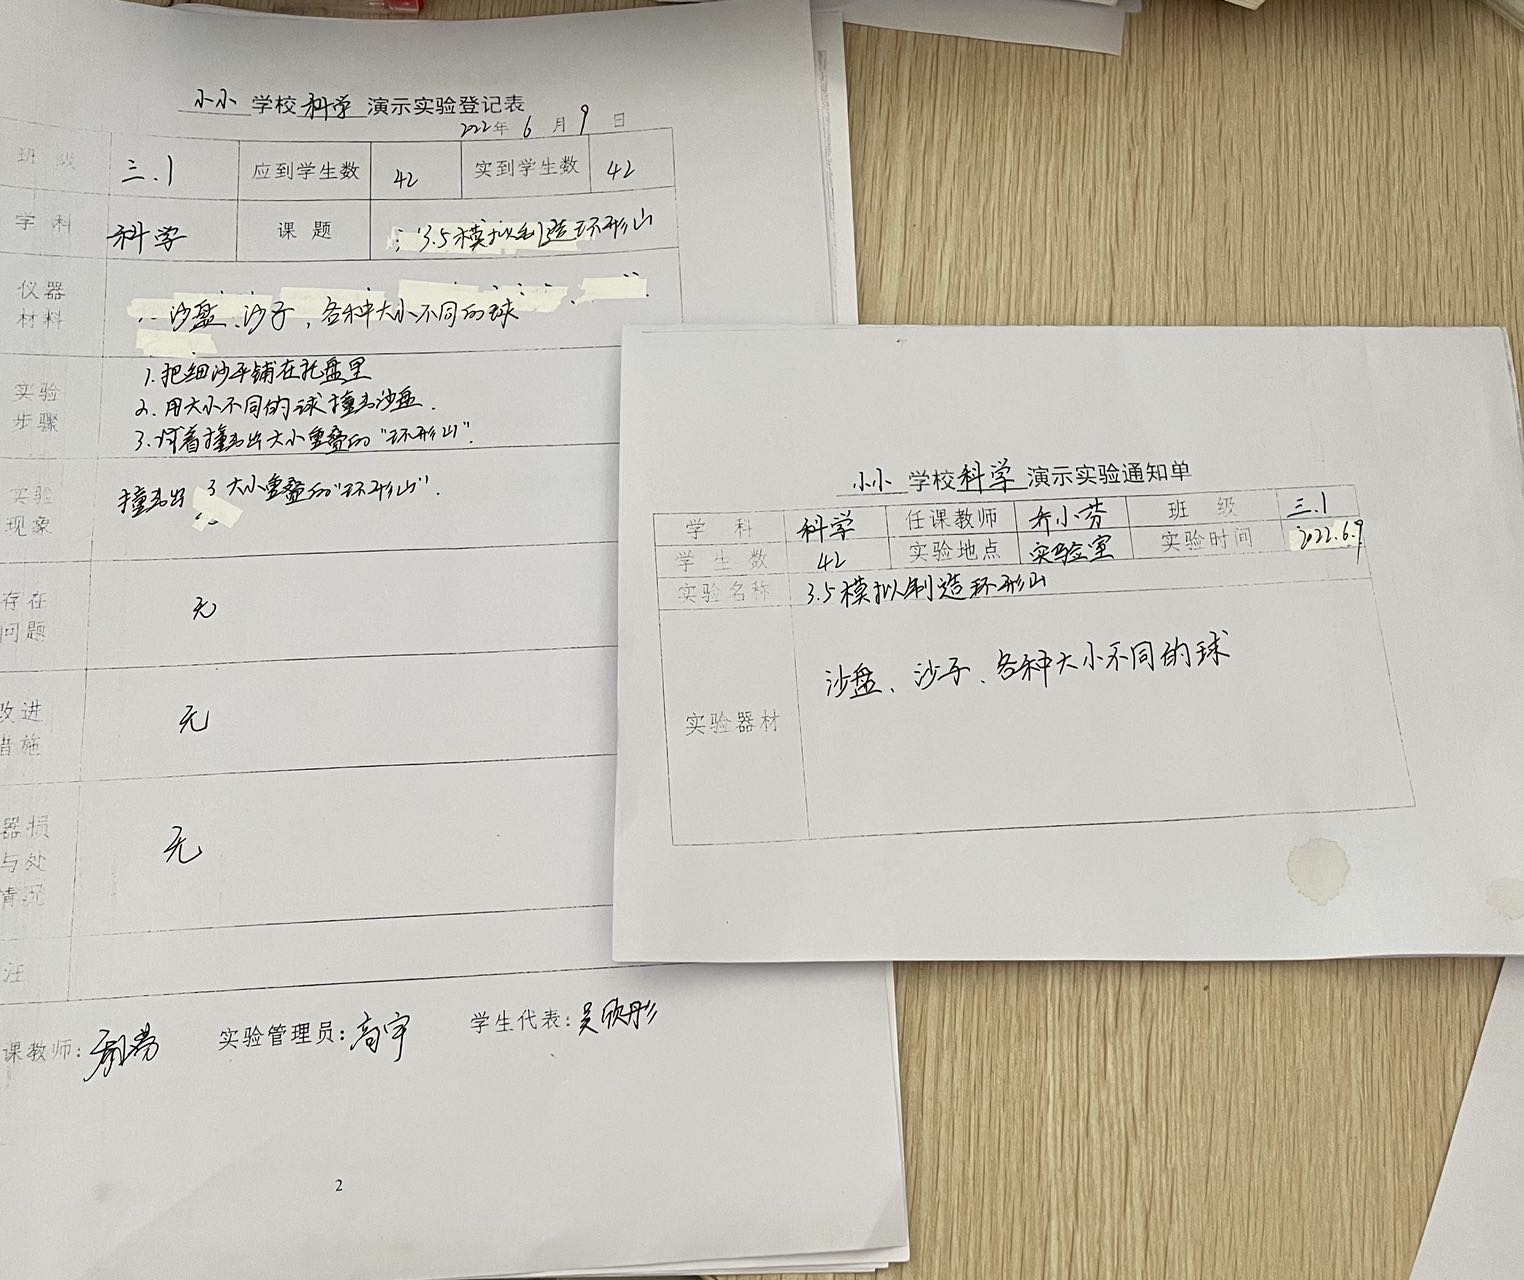 小小 学校 科学 演示实验登记表
2022年 6 月 9 日
班 级 三.1 应到学生数 42 实到学生数 42
学 科 科学 课 题 3.5模拟制造环形山
仪器
材料
沙盘、沙子,各种大小不同的球
实验
步骤
1.把细沙平铺在托盘里
2.用大小不同的球撞击沙盘.
3.试着撞击出大小重叠的“环形山”.
实验
现象
撞击出了大小重叠的“环形山”.
存在
问题
无
改进
措施
无
器损
与处
情况
无
注
课教师: 实验管理员:高宇 学生代表:吴欣彤
2
小小 学校 科学 演示实验通知单
学 科 科学 任课教师 乔小芬 班 级 三.1
学 生 数 42 实验地点 实验室 实验时间 2022.6.9
实验名称 3.5模拟制造环形山
实验器材 沙盘、沙子、各种大小不同的球